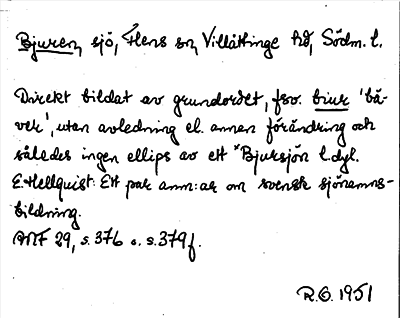 Bjuren, sjö, Flens sn, Villåttinge hd, Södm. l.
Direkt bildat av grundordet, fsv. biur 'bä-
ver', utan avledning el. annan förändring och
således ingen ellips av ett *Bjursjön l. dyl.
E. Hellquist: Ett par anm:ar om svensk sjönamns-
bildning.
ANF 29, s. 376 o. s. 379 f.
R.O. 1951